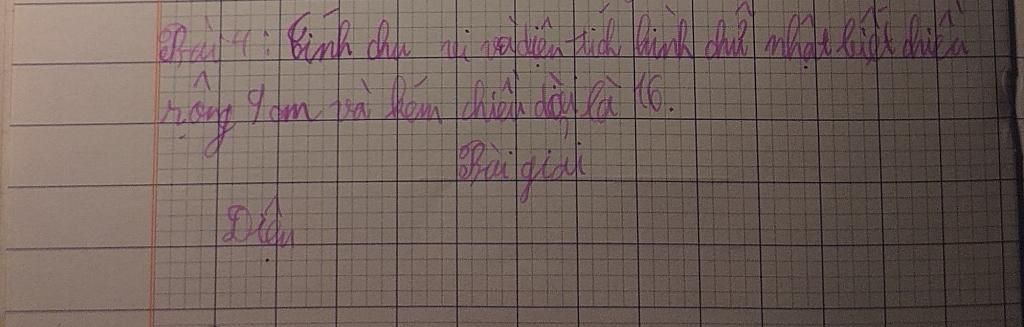 Bài 4: Tính chu vi và diện tích hình chữ nhật biết chiều
rộng 9 cm và kém chiều dài là 16.
Bài giải